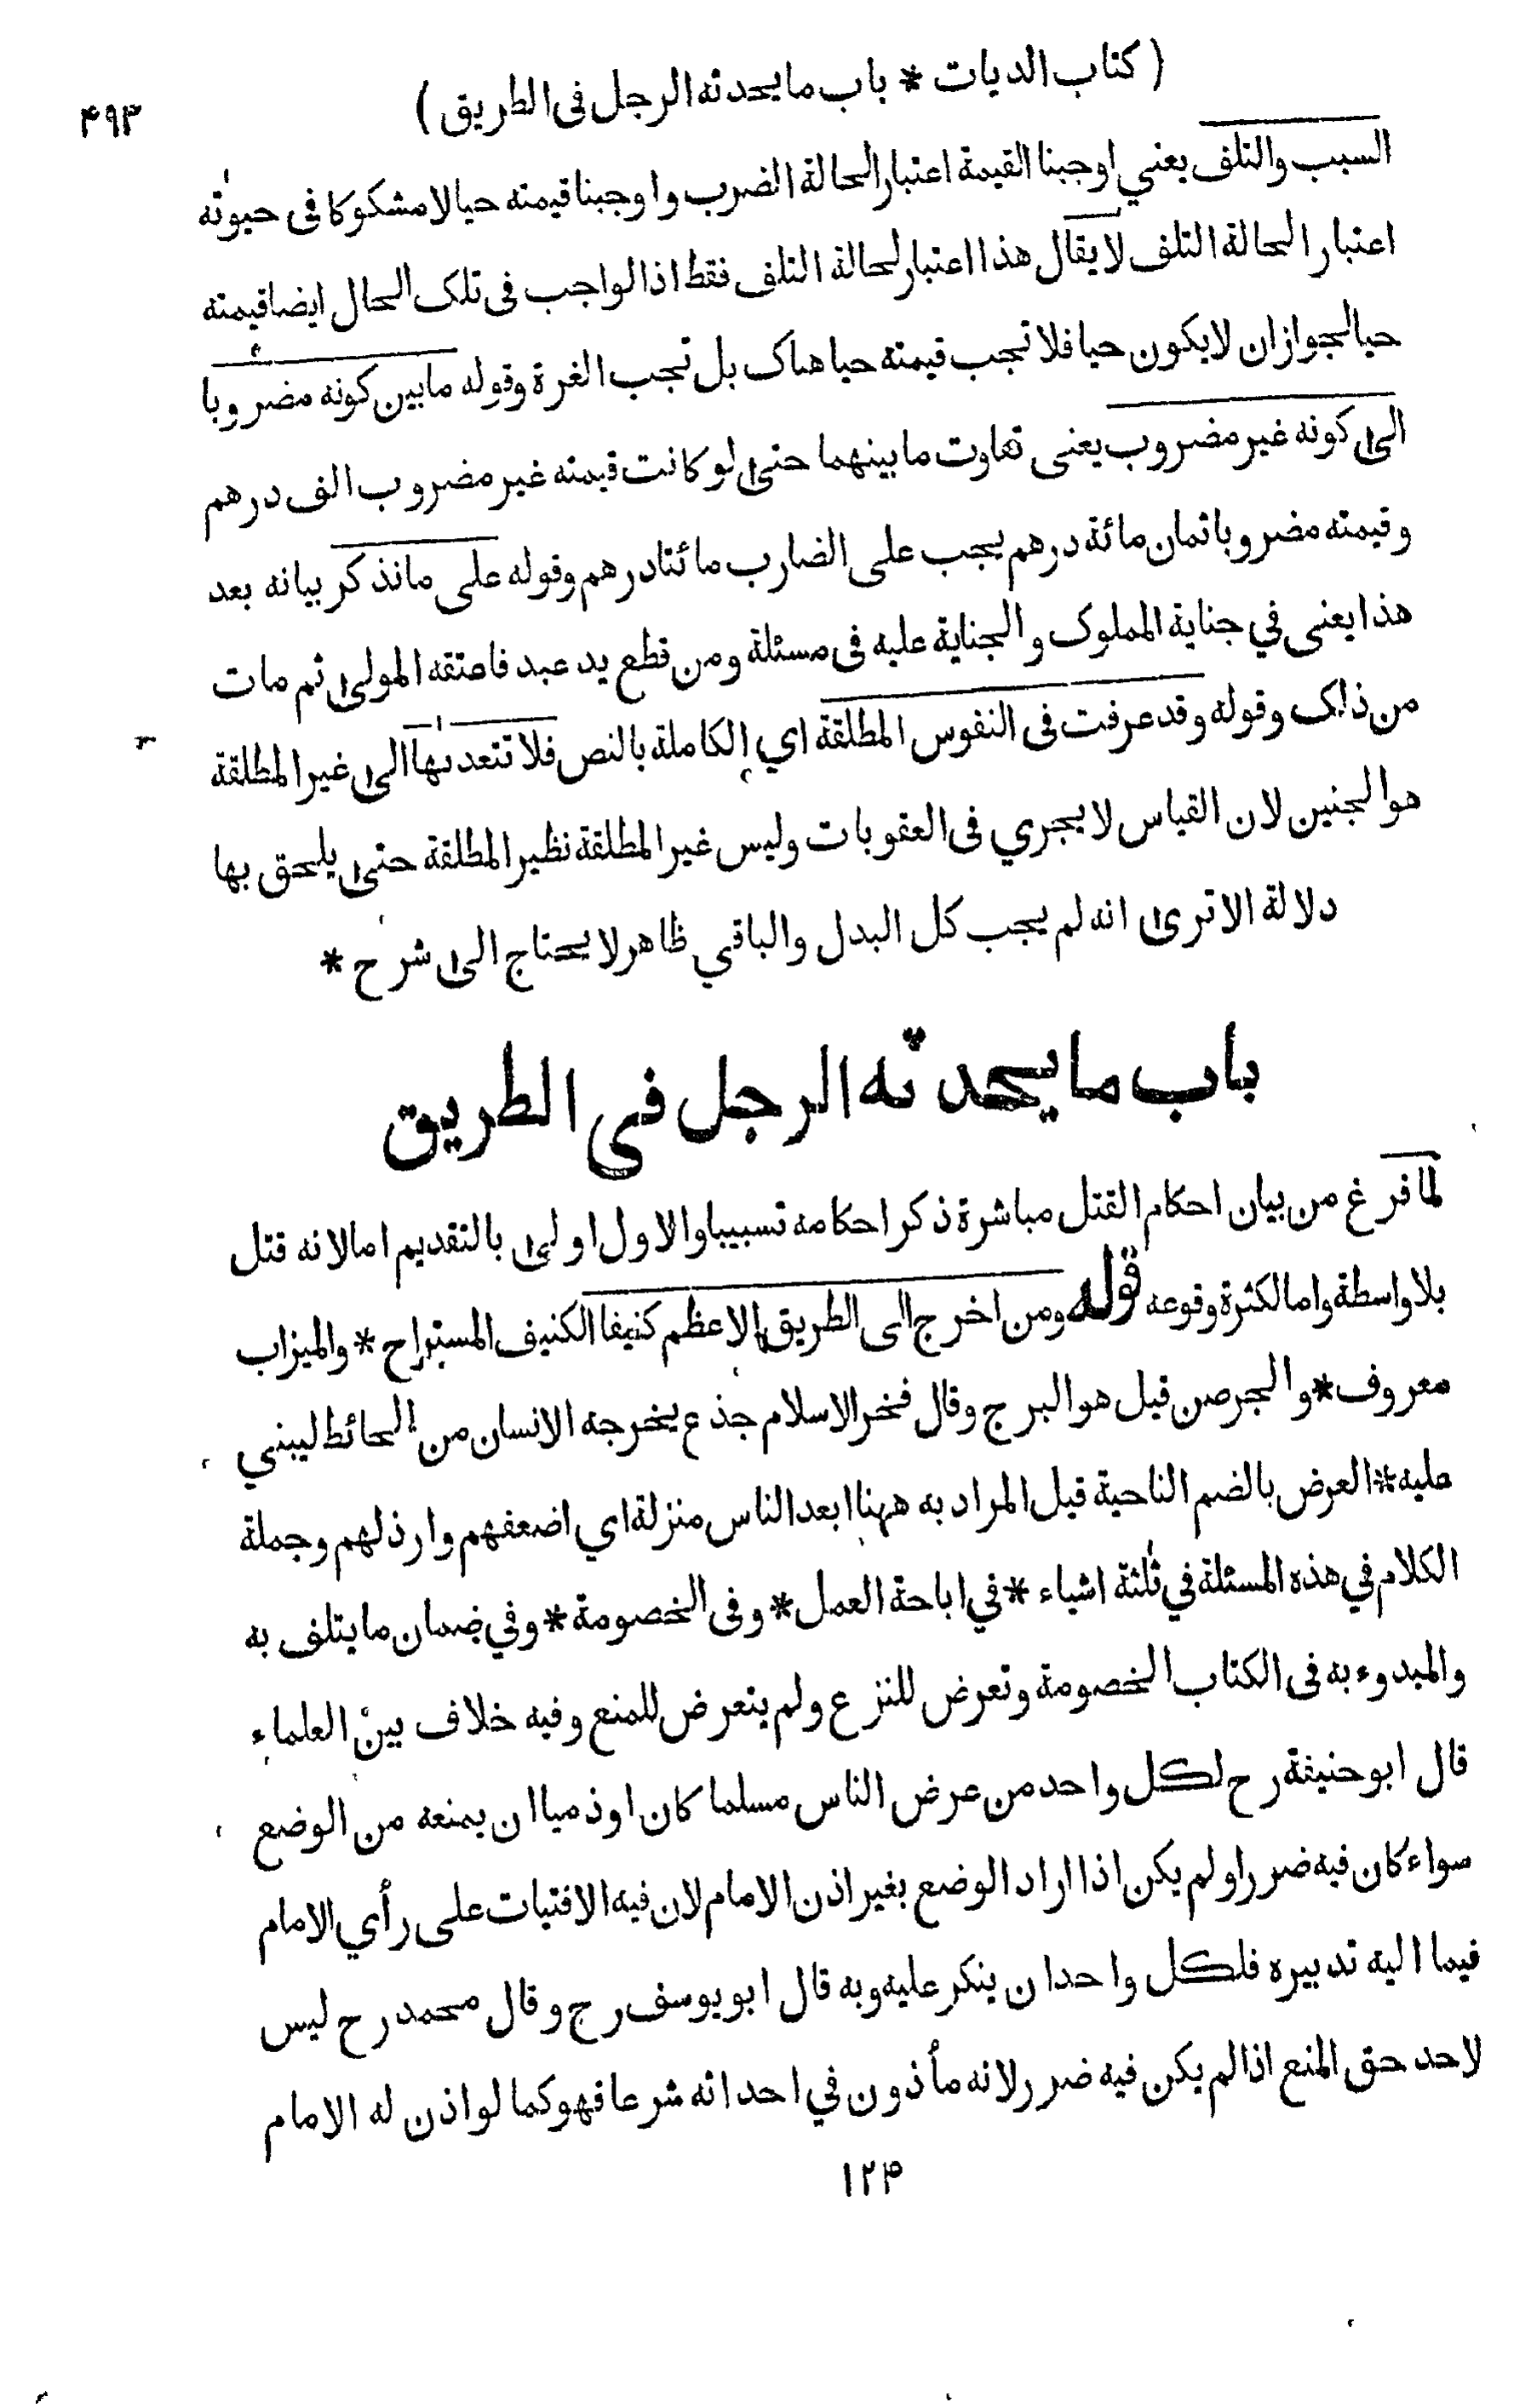 ( كتاب الديات * باب ما يحدثه الرجل فى الطريق )
۴۹۳
السبب والتلف يعني اوجبنا القيمة اعتبارا لحالة الضرب واوجبنا قيمته حيا لا مشكوكا فى حيوته
اعتبارا لحالة التلف لا يقال هذا اعتبار لحالة التلف فقط اذا لواجب فى تلك الحال ايضا قيمته
حيا لجواز ان لا يكون حيا فلا تجب قيمته حيا هناك بل تجب الغرة وقوله ما بين كونه مضروبا
الى كونه غير مضروب يعنى تفاوت ما بينهما حتى لو كانت قيمته غير مضروب الف درهم
وقيمته مضروبا ثمان مائة درهم يجب على الضارب مائتا درهم وقوله على ما نذكر بيانه بعد
هذا يعنى في جناية المملوك والجناية عليه فى مسئلة ومن قطع يد عبد فاعتقه المولى ثم مات
من ذلك وقوله وقد عرفت فى النفوس المطلقة اي الكاملة بالنص فلا تتعداها الى غير المطلقة
هو الجنين لان القياس لا يجري فى العقوبات وليس غير المطلقة نظير المطلقة حتى يلحق بها
دلالة الا ترى انه لم يجب كل البدل والباقي ظاهر لا يحتاج الى شرح *
باب ما يحدثه الرجل فى الطريق
لما فرغ من بيان احكام القتل مباشرة ذكر احكامه تسبيبا والاول اولى بالتقديم اما لانه قتل
بلا واسطة واما لكثرة وقوعه قوله ومن اخرج الى الطريق الاعظم كنيفا الكنيف المستراح * والميزاب
معروف * والجرصن قيل هو البرج وقال فخر الاسلام جذع يخرجه الانسان من الحائط ليبني
عليه * العرض بالضم الناحية قيل المراد به ههنا ابعد الناس منزلة اي اضعفهم وارذلهم وجملة
الكلام في هذه المسئلة في ثلثة اشياء * في اباحة العمل * وفى الخصومة * وفي ضمان ما يتلف به
والمبدوء به فى الكتاب الخصومة وتعرض للنزع ولم يتعرض للمنع وفيه خلاف بين العلماء
قال ابو حنيفة رح لكل واحد من عرض الناس مسلما كان او ذميا ان يمنعه من الوضع
سواء كان فيه ضرر او لم يكن اذا اراد الوضع بغير اذن الامام لان فيه الافتيات على رأي الامام
فيما اليه تدبيره فلكل واحد ان ينكر عليه وبه قال ابو يوسف رح وقال محمد رح ليس
لاحد حق المنع اذا لم يكن فيه ضرر لانه مأذون في احداثه شرعا فهو كما لو اذن له الامام
۱۲۴